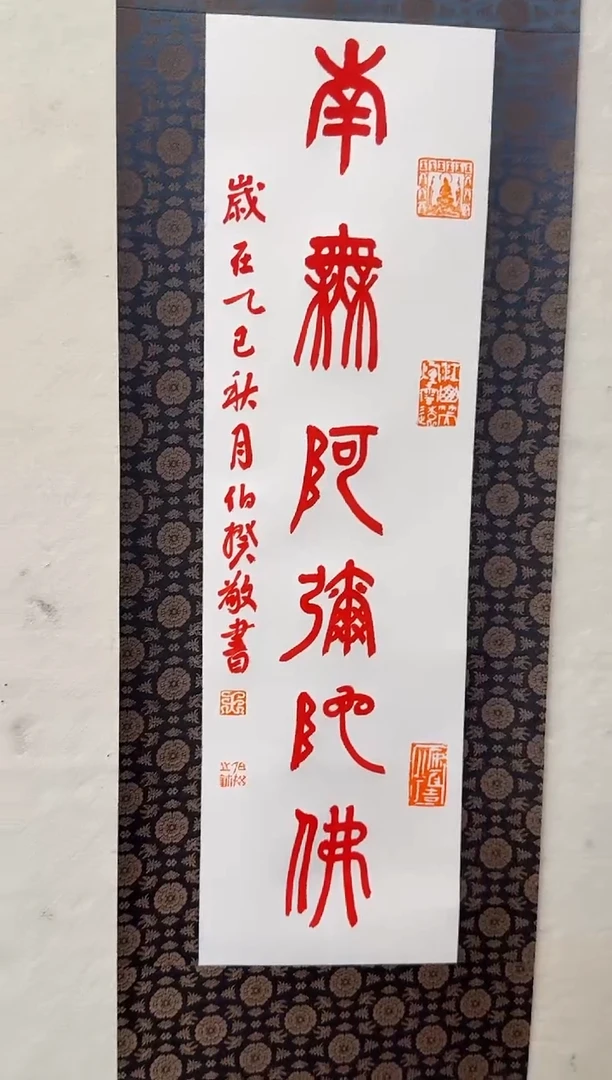 南無阿彌陀佛
歲在乙巳秋月伯揆敬書